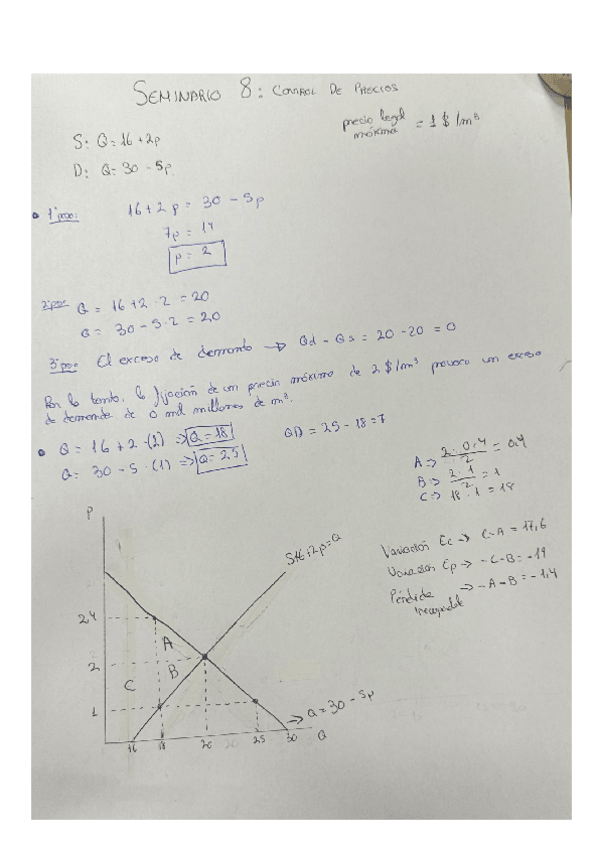 SEMINARIO 8: CONTROL DE PRECIOS
precio legal
máximo = 1 $/m³
S: Q = 16 + 2p
D: Q = 30 - 5p
1º paso:
16 + 2p = 30 - 5p
7p = 14
p = 2
2º paso
Q = 16 + 2 · 2 = 20
Q = 30 - 5 · 2 = 20
3º paso El exceso de demanda → Qd - Qs = 20 - 20 = 0
Por lo tanto, la fijación de un precio máximo de 2 $/m³ provoca un exceso
de demanda de 0 mil millones de m³.
Q = 16 + 2 · (1) ⇒ Q = 18
Q = 30 - 5 · (1) ⇒ Q = 25
QD = 25 - 18 = 7
A ⇒ 2 · 0,4 / 2 = 0,4
B ⇒ 2 · 1 / 2 = 1
C ⇒ 18 · 1 = 18
Variación Ec → C - A = 17,6
Variación Ep → - C - B = - 19
Pérdida
irrecuperable → - A - B = - 1,4
P
S 16 + 2p = Q
2,4
A
2
B
C
1
→ Q = 30 - 5p
16 18 20 25 30 Q